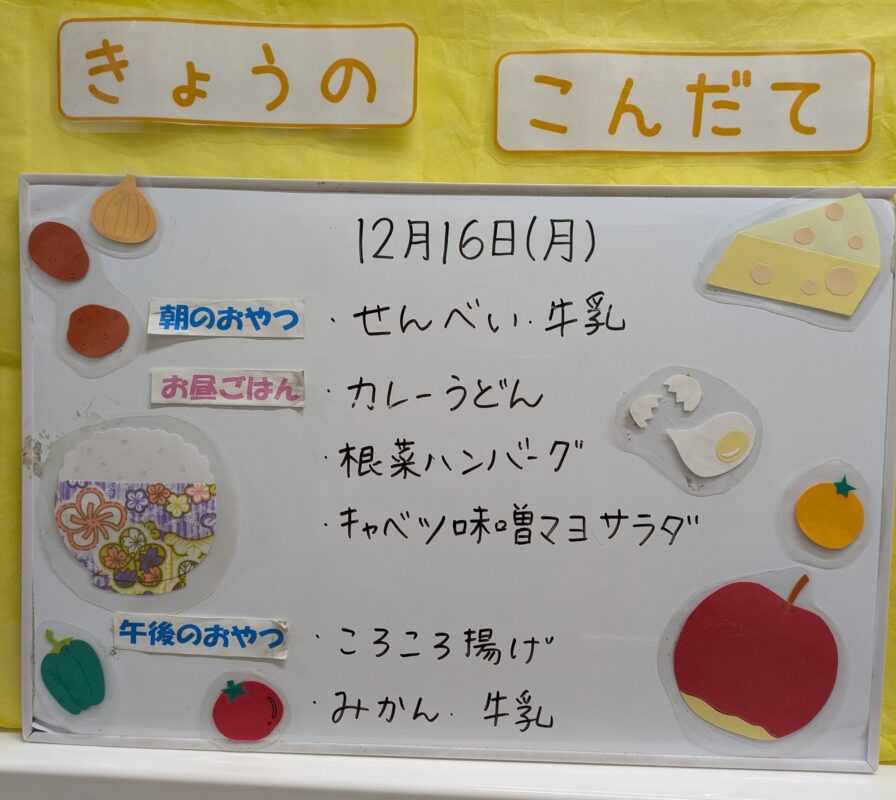 きょうの こんだて
12月16日(月)
朝のおやつ ・せんべい・牛乳
お昼ごはん ・カレーうどん
・根菜ハンバーグ
・キャベツ味噌マヨサラダ
午後のおやつ ・ころころ揚げ
・みかん・牛乳